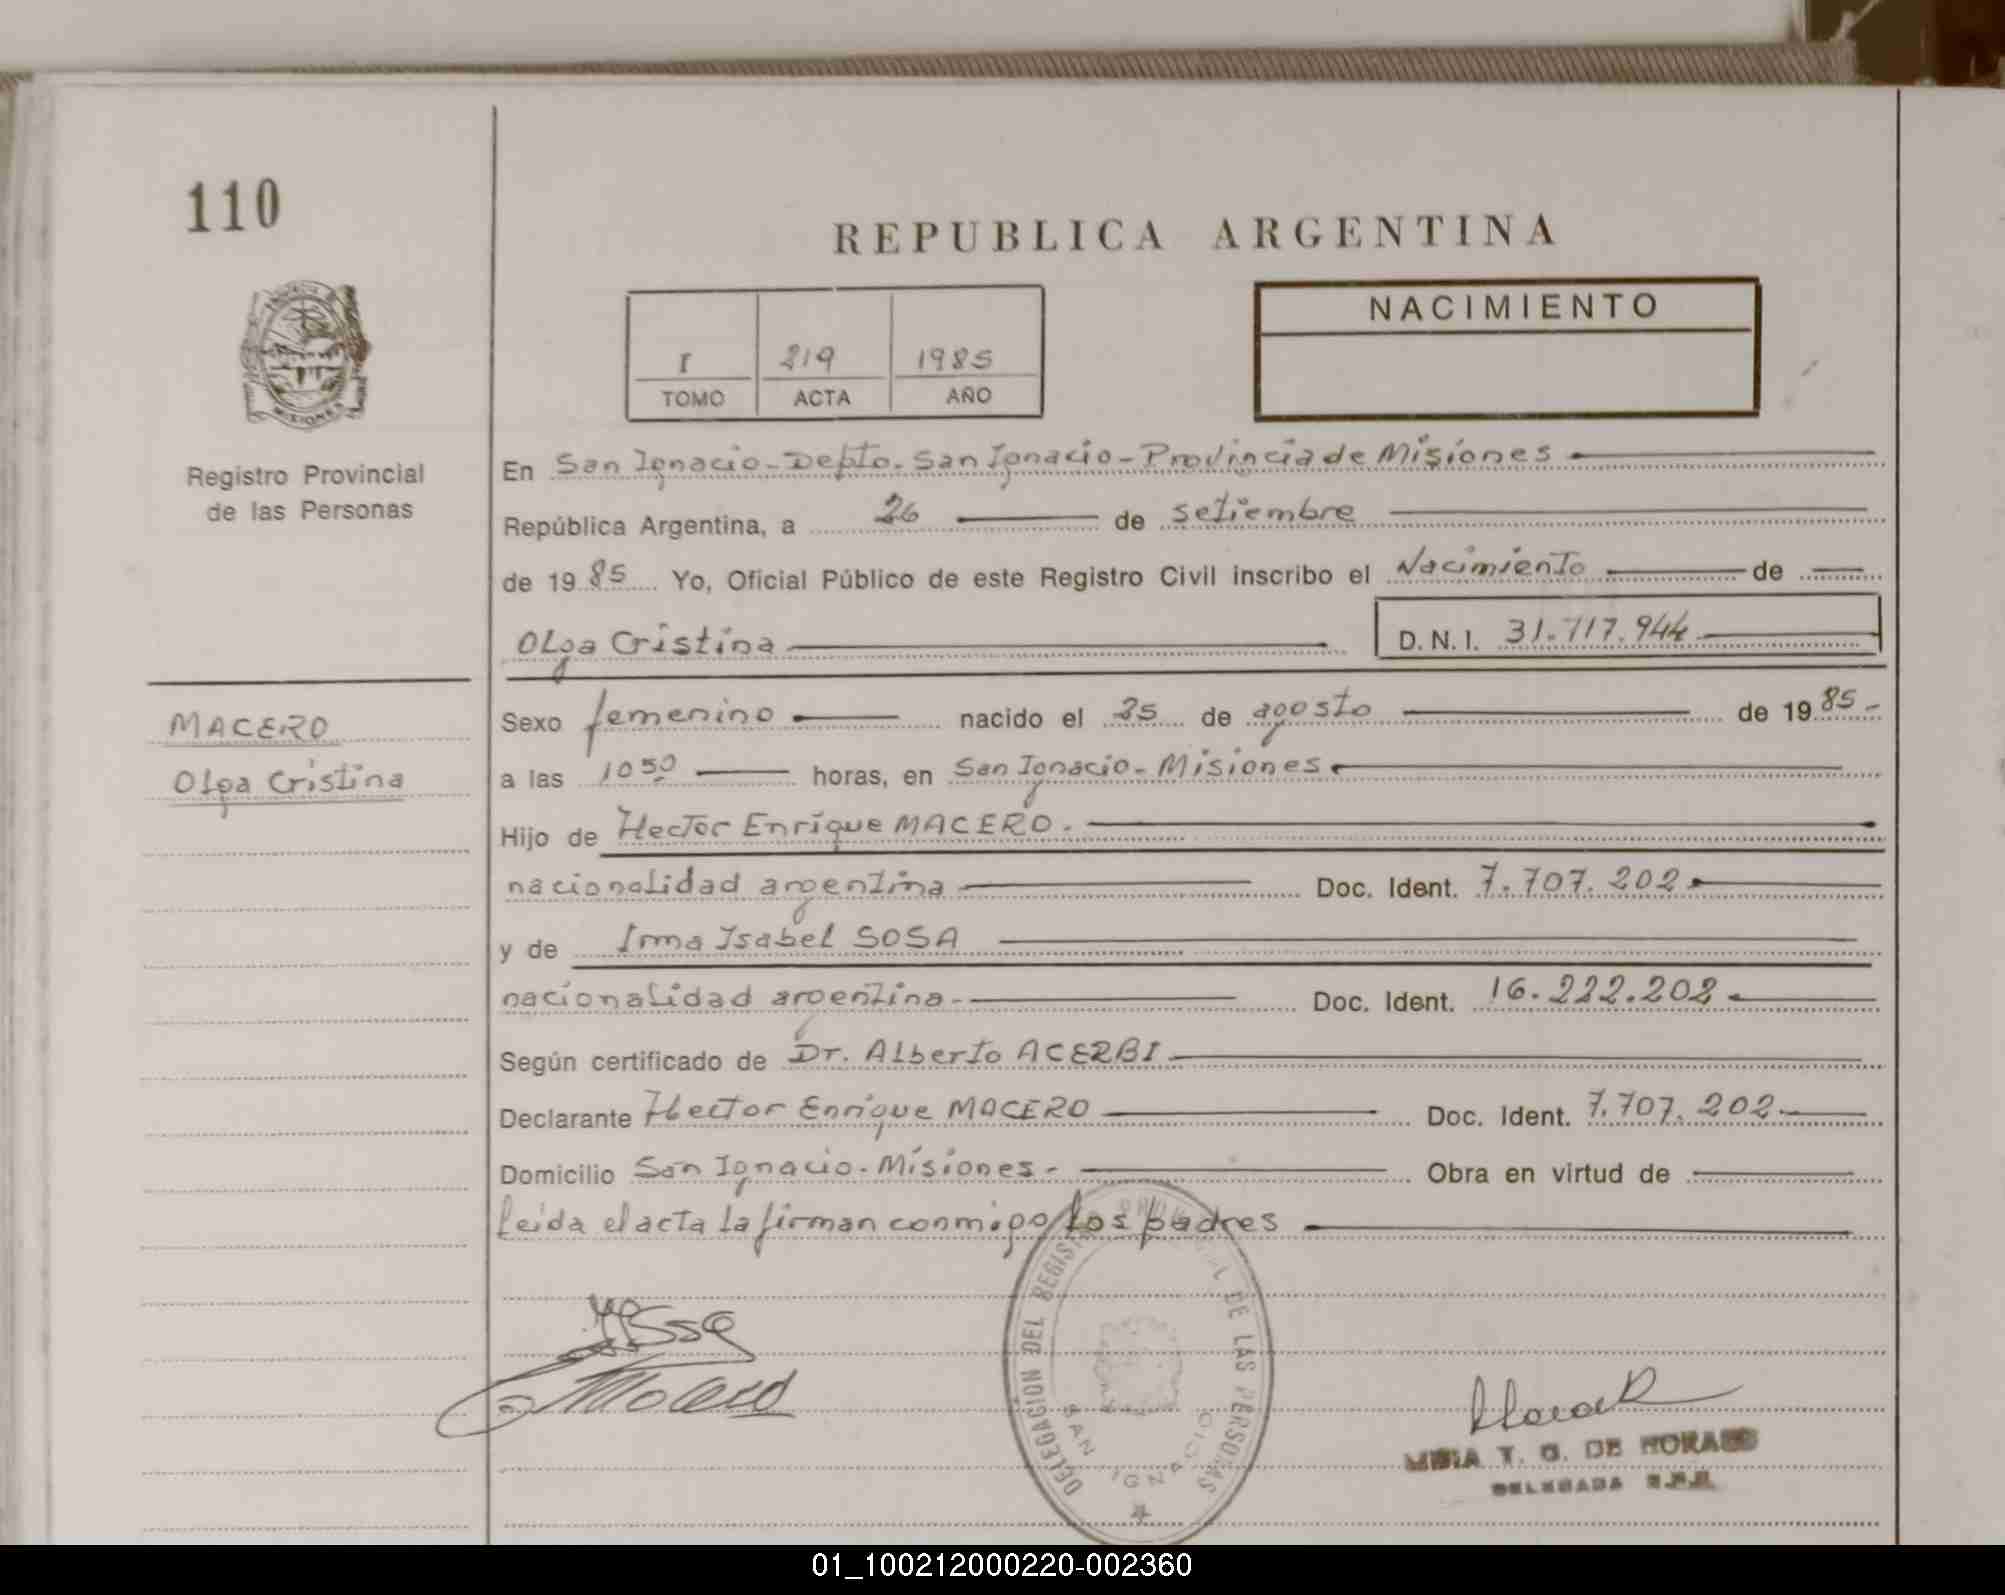 110
REPUBLICA ARGENTINA
NACIMIENTO
I 219 1985
TOMO ACTA AÑO
MISIONES
Registro Provincial
de las Personas
En San Ignacio - Depto. San Ignacio - Provincia de Misiones
República Argentina, a 26 de setiembre
de 19 85 Yo, Oficial Público de este Registro Civil inscribo el Nacimiento de
Olga Cristina D. N. I. 31.717.944
MACERO
Olga Cristina
Sexo femenino nacido el 25 de agosto de 19 85 -
a las 10 50 horas, en San Ignacio - Misiones
Hijo de Hector Enrique MACERO.
nacionalidad argentina Doc. Ident. 7.707.202
y de Irma Isabel SOSA
nacionalidad argentina - Doc. Ident. 16.222.202
Según certificado de Dr. Alberto ACERBI
Declarante Hector Enrique MACERO Doc. Ident. 7.707.202
Domicilio San Ignacio - Misiones - Obra en virtud de
leida el acta la firman conmigo los padres
DELEGACION DEL REGISTRO PROVINCIAL DE LAS PERSONAS
SAN IGNACIO
T. G. DE MORAES
DELEGADA
01_100212000220-002360